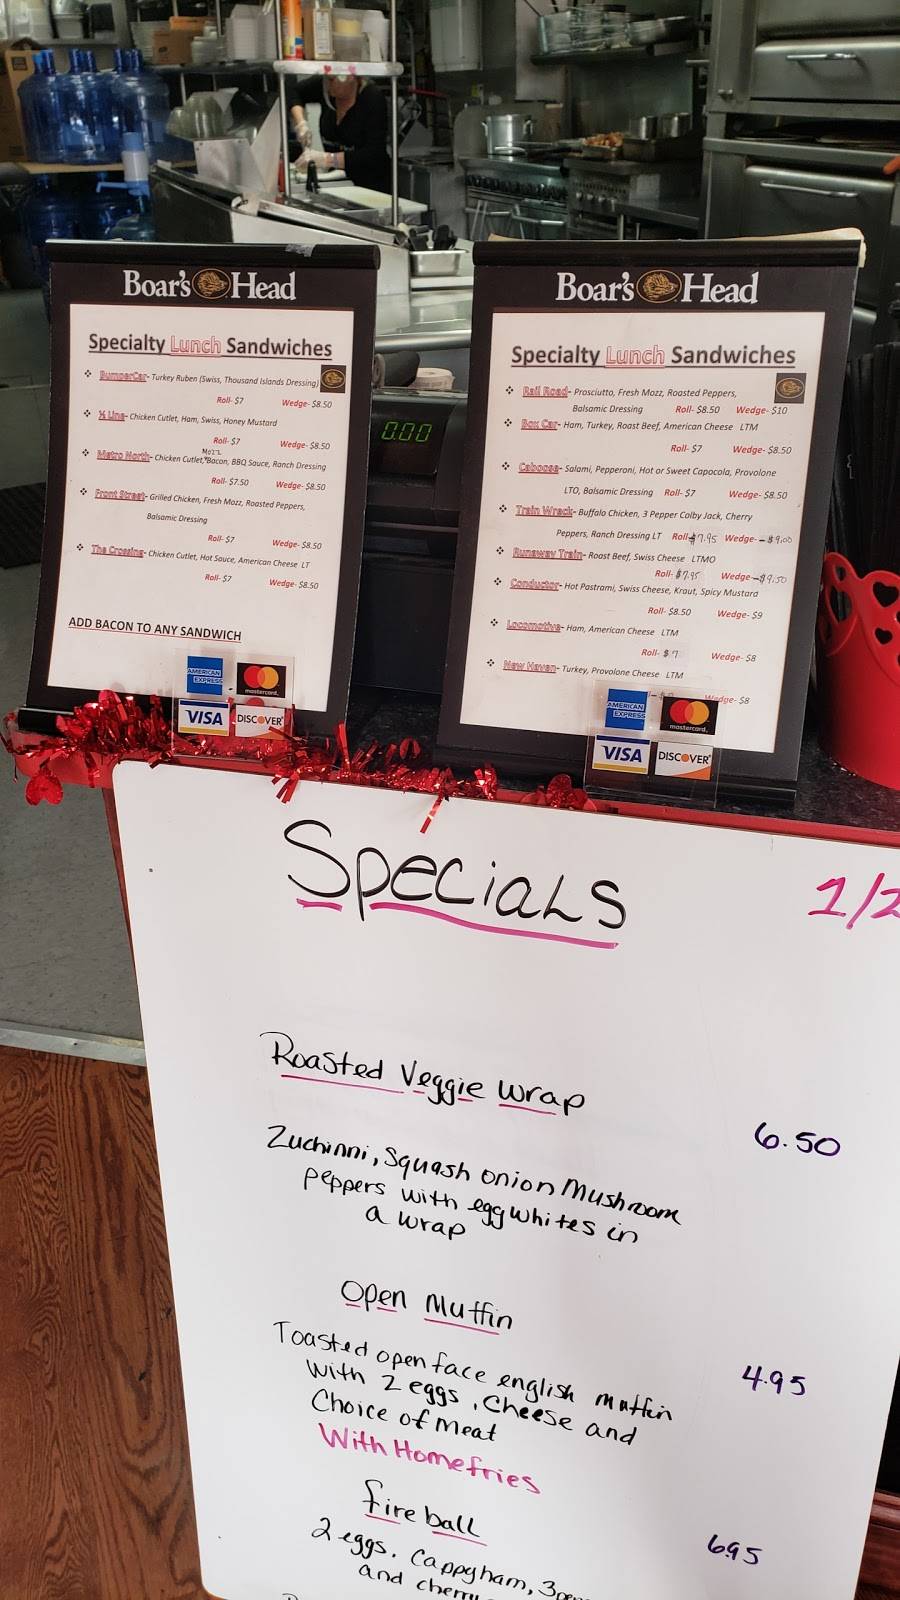 Boar's Head
Specialty Lunch Sandwiches
BumperCar- Turkey Ruben (Swiss, Thousand Islands Dressing)
Roll- $7 Wedge- $8.50
¾ Line- Chicken Cutlet, Ham, Swiss, Honey Mustard
Roll- $7 Wedge- $8.50
Mozz
Metro North- Chicken Cutlet, Bacon, BBQ Sauce, Ranch Dressing
Roll- $7.50 Wedge- $8.50
Front Street- Grilled Chicken, Fresh Mozz, Roasted Peppers,
Balsamic Dressing
Roll- $7 Wedge- $8.50
The Crossing- Chicken Cutlet, Hot Sauce, American Cheese LT
Roll- $7 Wedge- $8.50
ADD BACON TO ANY SANDWICH
AMERICAN EXPRESS
mastercard.
VISA
DISCOVER
0.00
Boar's Head
Specialty Lunch Sandwiches
Rail Road- Prosciutto, Fresh Mozz, Roasted Peppers,
Balsamic Dressing Roll- $8.50 Wedge- $10
Box Car- Ham, Turkey, Roast Beef, American Cheese LTM
Roll- $7 Wedge- $8.50
Caboose- Salami, Pepperoni, Hot or Sweet Capocola, Provolone
LTO, Balsamic Dressing Roll- $7 Wedge- $8.50
Train Wreck- Buffalo Chicken, 3 Pepper Colby Jack, Cherry
Peppers, Ranch Dressing LT Roll- $7.95 Wedge- $9.00
Runaway Train- Roast Beef, Swiss Cheese LTMO
Roll- $7.95 Wedge- $9.50
Conductor- Hot Pastrami, Swiss Cheese, Kraut, Spicy Mustard
Roll- $8.50 Wedge- $9
Locomotive- Ham, American Cheese LTM
Roll- $7 Wedge- $8
New Haven- Turkey, Provolone Cheese LTM
Wedge- $8
AMERICAN EXPRESS
mastercard.
VISA
DISCOVER
Specials 1/2
Roasted Veggie Wrap
6.50
Zuchinni, Squash onion Mushroom
peppers with egg whites in
a wrap
Open Muffin
4.95
Toasted open face english muffin
With 2 eggs, Cheese and
Choice of Meat
With Homefries
fire ball
6.95
2 eggs. Cappy ham, 3
and cherry